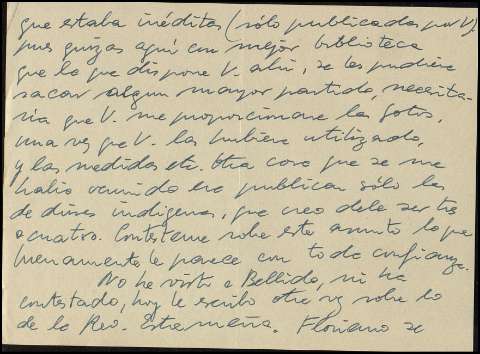 que estaba inéditas (sólo publicadas por V.)
pues quizas aquí con mejor biblioteca
que la que dispone V. ahí, se les pudiera
sacar algun mayor partido, necesita-
ria que V. me proporcionara las fotos,
una vez que V. las hubiera utilizado,
y las medidas etc. Otra cosa que se me
habia ocurrido era publicar sólo las
de dioses indigenas, que creo debe ser tres
o cuatro. Contésteme sobre este asunto lo que
buenamente le parece con toda confianza.
No he visto a Bellido, ni ha
contestado, hoy le escribo otra vez sobre lo
de la Rev. Estremeña. Floriano se